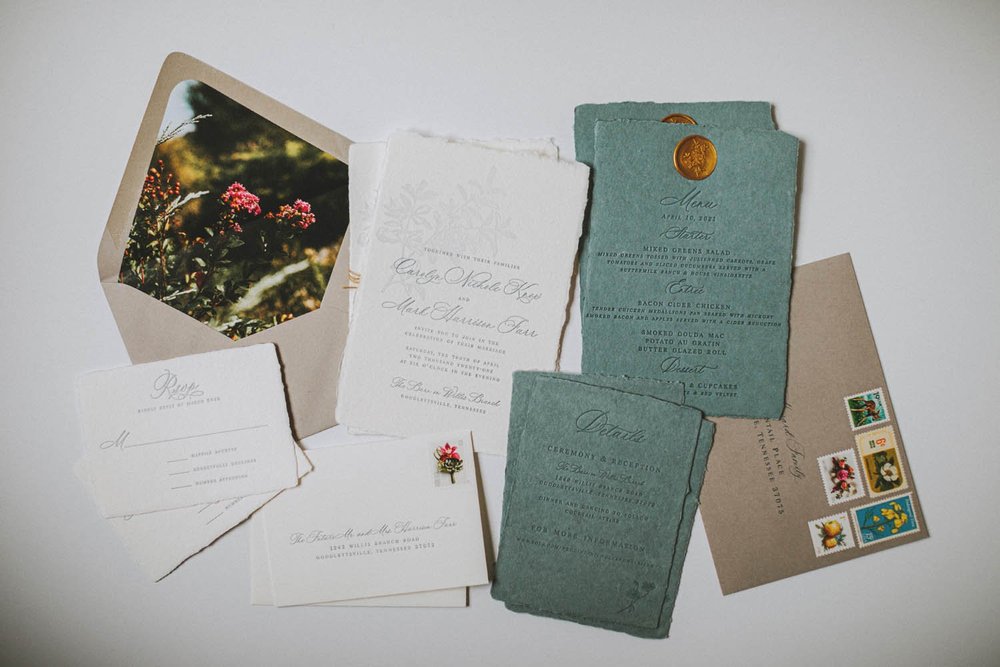 TOGETHER WITH THEIR FAMILIES
Carolyn Nichole
AND
Mark Harrison Farr
INVITE YOU TO JOIN IN THE
CELEBRATION OF THEIR MARRIAGE
SATURDAY, THE TENTH OF APRIL
TWO THOUSAND TWENTY-ONE
AT SIX O'CLOCK IN THE EVENING
The Barn at Willis Branch
GOODLETTSVILLE, TENNESSEE
Menu
APRIL 10, 2021
Starter
MIXED GREENS SALAD
MIXED GREENS TOSSED WITH JULIENNED CARROTS, GRAPE
TOMATOES & SLICED CUCUMBERS SERVED WITH A
BUTTERMILK RANCH & HOUSE VINAIGRETTE
Entrée
BACON CIDER CHICKEN
TENDER CHICKEN MEDALLIONS PAN SEARED WITH HICKORY
SMOKED BACON AND APPLES SERVED WITH A CIDER REDUCTION
SMOKED GOUDA MAC
POTATO AU GRATIN
BUTTER GLAZED ROLL
Dessert
& CUPCAKES
& RED VELVET
Rsvp
KINDLY REPLY BY
M
The Future Mr. and Mrs. Harrison Farr
WILLIS BRANCH ROAD
GOODLETTSVILLE, TENNESSEE 37072
Details
CEREMONY & RECEPTION
The Barn at Willis Branch
WILLIS BRANCH ROAD
GOODLETTSVILLE, TENNESSEE
DINNER AND DANCING TO FOLLOW
COCKTAIL ATTIRE
FOR MORE INFORMATION
Family
PLACE
TENNESSEE 37075